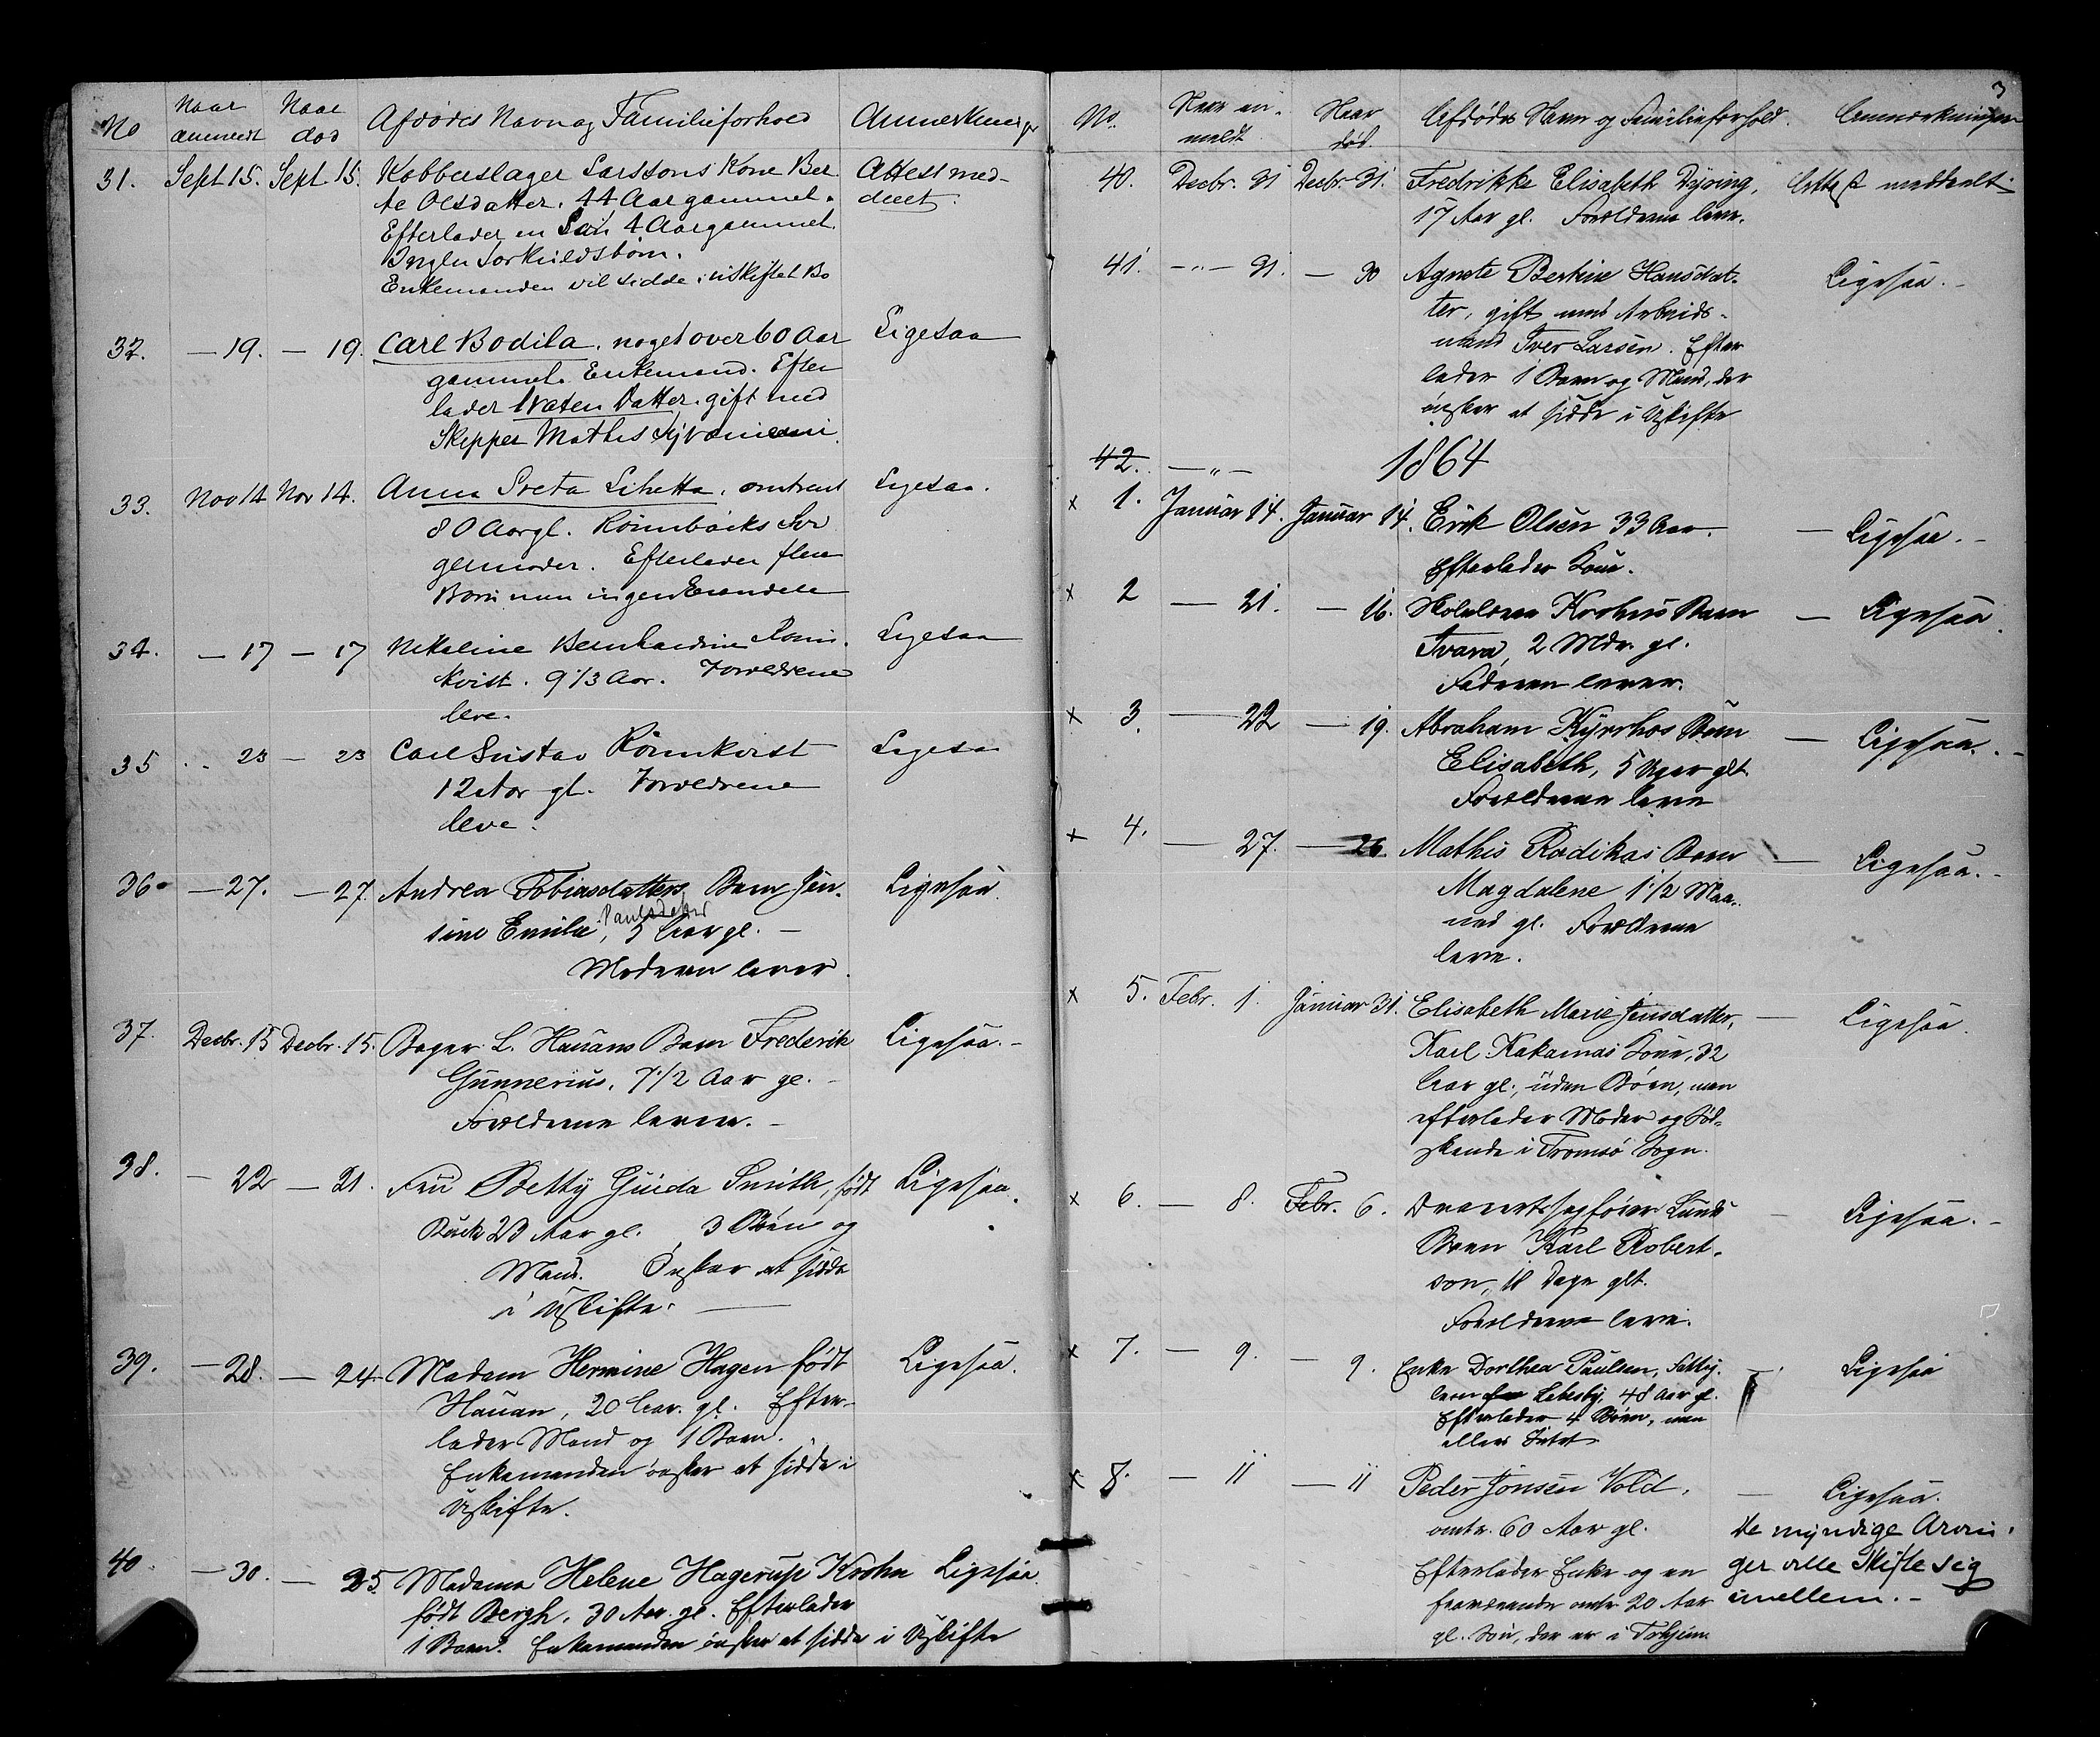 No
Naar anmeldt
Naar død
Afdødes Navn og Familieforhold
Anmerkninger
31. Sept 15. Sept 15. Kobberslager Larssons Kone Ber
te Olsdatter. 44 Aar gammel.
Efterlader en Søn 4 Aar gammel.
Ingen Særkuldsbørn.
Enkemanden vil sidde i uskiftet Bo
Attest med-
deelt.
32. — 19. — 19. Carl Bodila. noget over 60 Aar
gammel. Enkemand. Efter
lader voxen Datter. gift med
Skipper Mathis
Ligesaa
33. Nov 14 Nov 14. Anna Greta Lihetta. omtrent
80 Aar gl. Rönnbäcks Svi
germoder. Efterlader flere
Børn men ingen Eiendele
Ligesaa.
34. — 17 — 17 Nikoline Bernhardine Rönn.
kvist. 9 1/3 Aar. Forældrene
leve.
Ligesaa
35 23 — 23 Carl Gustav Rönnkvist
12 Aar gl. Forældrene
leve.
Ligesaa
36. — 27. — 27. Andrea Tobiasdatters Barn Jen-
Paulsdatter
sine Emilie, 5 Aar gl. —
Moderen lever.
Ligesaa.
37. Decbr. 15 Decbr. 15. Bager L. Hauans Barn Frederik
Gunnerius, 7 1/2 Aar gl. —
Forældrene lever. —
Ligesaa. —
38. — 22 — 21. Fru Betty Guida Smith, født
Buck 23 Aar gl. 3 Børn og
Mand. Ønsker at sidde
i Uskifte. —
Ligesaa.
39. — 28. — 24 Madam Hermine Hagen født
Hauan, 20 Aar. gl. Efter-
lader Mand og 1 Barn.
Enkemanden ønsker at sidde i
Uskifte.
Ligesaa.
40. — 30. — 25 Madame Helene Hagerup Krohn Ligesaa.
født Bergh, 30 Aar. gl. Efterlader
1 Barn. Enkemanden ønsker at sidde i Uskifte
3
No.
Naar an-
meldt
Naar
død.
Afdødes Navn og Familieforhold.
Anmærkninger
40. Decbr. 31 Decbr. 31. Fredrikke Elisabeth Dyring, Attest meddeelt
17 Aar gl. Forældrene leve.
41. — " — 31. — 30 Agnete Bertine Hansdat-
ter, gift med Arbeids-
mand Iver Larsen. Efter
lader 1 Barn og Mand, der
ønsker at sidde i Uskifte
Ligesaa. —
42. — " —
1864
x 1. Januar 14. Januar 14. Erik Olsen 33 Aar. — Ligesaa. —
Efterlader Kone.
x 2 — 21. — 16. Krohns Barn — Ligesaa.
2 Mdr. gl.
Faderen lever.
x 3. — 22 — 19. Abraham Kyrrhos Barn — Ligesaa. —
Elisabeth, 5 Uger glt.
Forældrene leve
x 4. — 27. — 26 Mathis Radikas Barn — Ligesaa. —
Magdalene 1 1/2 Maa-
ned gl. Forældrene
leve.
x 5. Febr. 1. Januar 31. Elisabeth Marie Jensdatter, — Ligesaa.
Karl Kakamas Kone, 32
Aar gl., uden Børn, men
efterlader Moder og Sød-
skende i Tromsø Sogn.
x 6. — 8. Febr. 6. Overretssagfører Lunds — Ligesaa. —
Barn Karl Robert-
son, 18 Dage glt.
Forældrene leve.
x 7. — 9. — 9. Enke Dorthea Paulsen, Fattig-
lem fra Lebesby, 48 Aar gl.
Efterlader 4 Børn, men
ellers Intet
Ligesaa
x 8. — 11 — 11 Peder Jonsen Vold,
omtr. 60 Aar gl.
Efterlader Enke og en
fraværende omtr. 20 Aar
gl. Søn, der er i
— Ligesaa.
De myndige Arvin-
ger ville Skifte sig
imellem. —